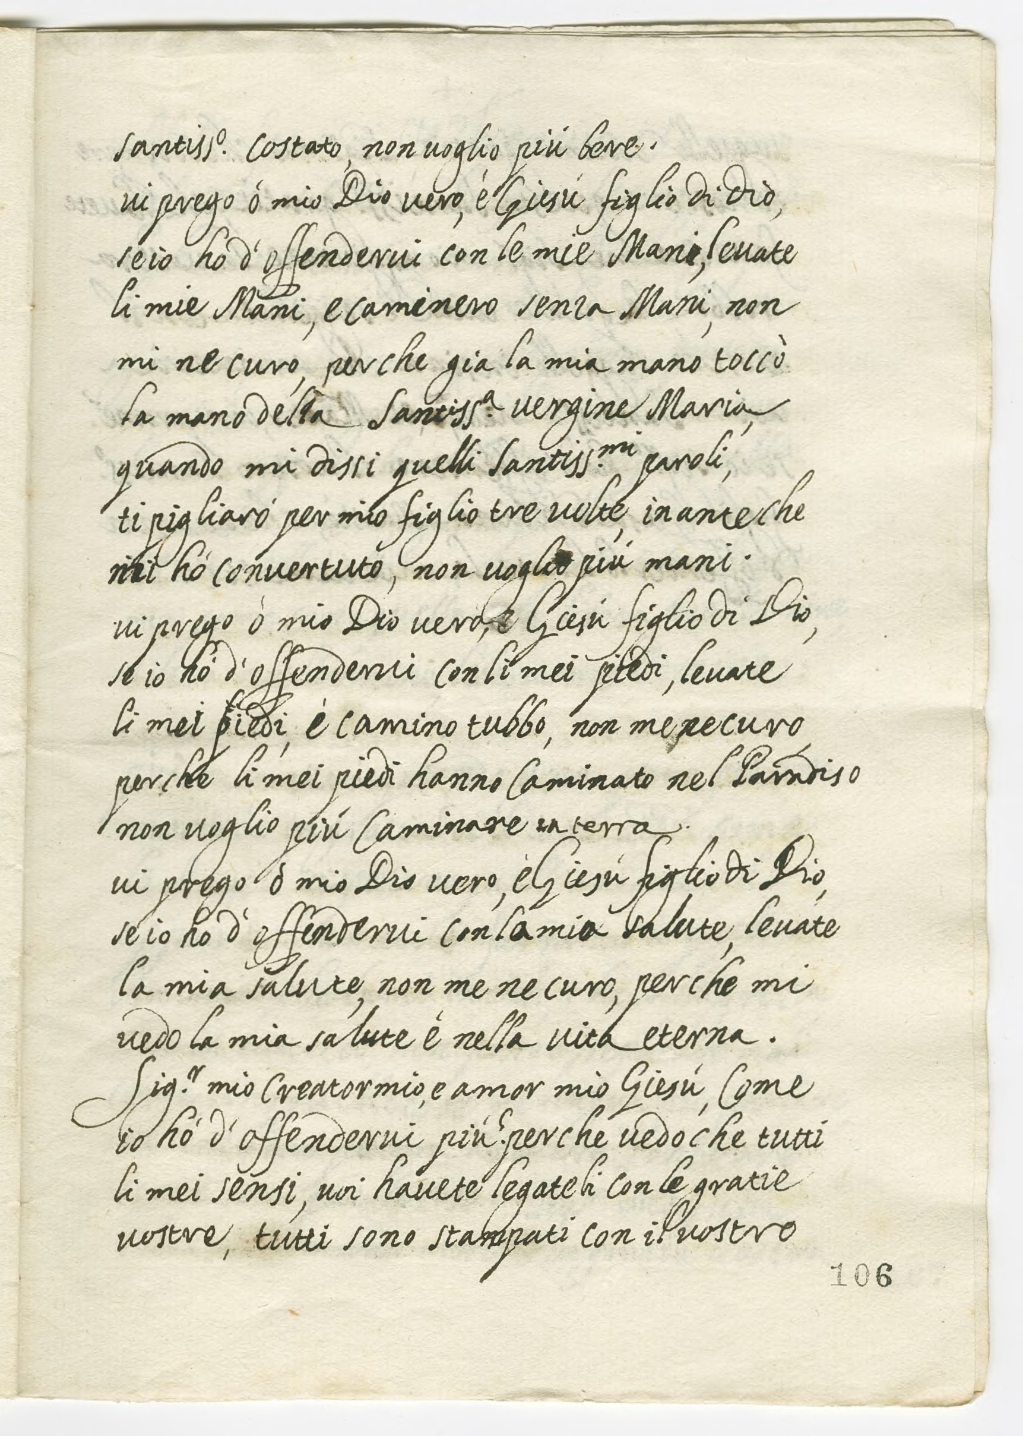 santiss.º costato, non uoglio più bere.
ui prego ò mio Dio uero, è Giesú figlio di dio,
se io ho d'offenderui con le mie Mani, leuate
li mie Mani, e caminero senza Mani, non
mi ne curo, perche gia la mia mano toccò
la mano della Santiss.ª uergine Maria,
quando mi dissi quelli Santiss.mi paroli,
ti pigliaró per mio figlio tre uolte, inante che
mi hó conuertuto, non uoglio più mani.
ui prego ò mio Dio uero, è Giesú figlio di Dio,
se io hó d'offenderui con li mei piedi, leuate
li mei piedi, é camino tubbo, non me ne curo,
perche li mei piedi hanno Caminato nel Paradiso
non uoglio più Caminare in terra.
ui prego ò mio Dio uero, è Giesú figlio di Dio,
se io ho d'offenderui con la mia salute, leuate
la mia salute, non me ne curo, perche mi
uedo la mia salute è nella uita eterna.
Sig.r mio Creator mio, e amor mio Giesú, Come
io hó d'offenderui più? perche uedo che tutti
li mei sensi, uoi hauete legateli con le gratie
uostre, tutti sono stampati con il uostro
106